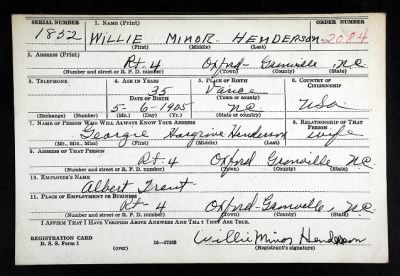 SERIAL NUMBER 1. NAME (Print) ORDER NUMBER
1852 WILLIE MINOR HENDERSON 2084
(First) (Middle) (Last)
2. ADDRESS (Print)
Rt. 4 Oxford Granville, N.C
(Number and street or R. F. D. number) (Town) (County) (State)
3. TELEPHONE 4. AGE IN YEARS 5. PLACE OF BIRTH 6. COUNTRY OF CITIZENSHIP
35 Vance
DATE OF BIRTH (Town or county)
5-6-1905 NC USA
(Exchange) (Number) (Mo.) (Day) (Yr.) (State or country)
7. NAME OF PERSON WHO WILL ALWAYS KNOW YOUR ADDRESS 8. RELATIONSHIP OF THAT PERSON
Georgie Hargrove Henderson wife
(Mr., Mrs., Miss) (First) (Middle) (Last)
9. ADDRESS OF THAT PERSON
Rt. 4 Oxford Granville, N.C
(Number and street or R. F. D. number) (Town) (County) (State)
10. EMPLOYER'S NAME
Albert
11. PLACE OF EMPLOYMENT OR BUSINESS
Rt- 4 Oxford-Granville, N.C
(Number and street or R. F. D. number) (Town) (County) (State)
I AFFIRM THAT I HAVE VERIFIED ABOVE ANSWERS AND THAT THEY ARE TRUE.
REGISTRATION CARD
D. S. S. Form 1 (over) 16—17105 Willie Minor Henderson
(Registrant's signature)